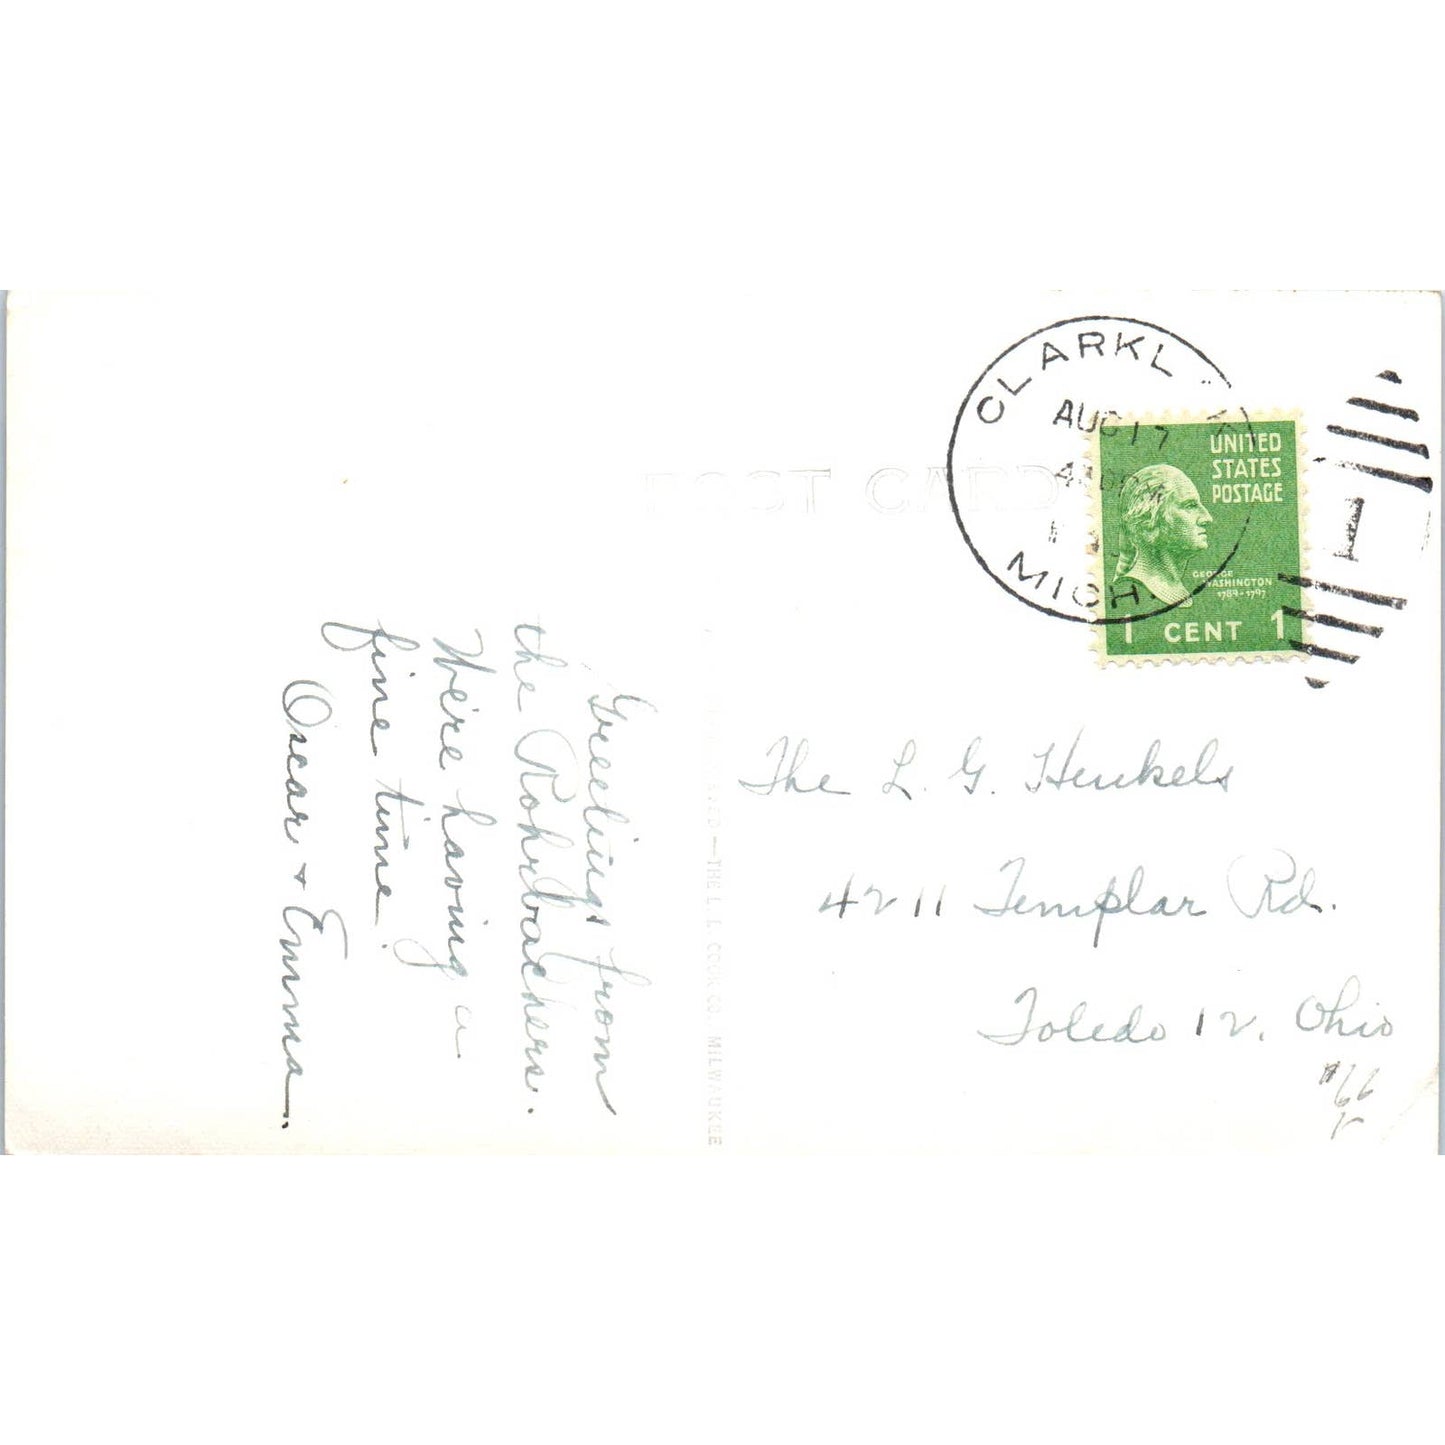 POST CARD
CLARKL
AUG 17
MICH.
UNITED
STATES
POSTAGE
GEORGE
WASHINGTON
1789-1797
1 CENT 1
Greetings from
the Rohrbachers.
We're having a
fine time.
Oscar + Emma.
THE L. L. COOK CO., MILWAUKEE
The L. G. Henkels
4211 Templar Rd.
Toledo 12, Ohio